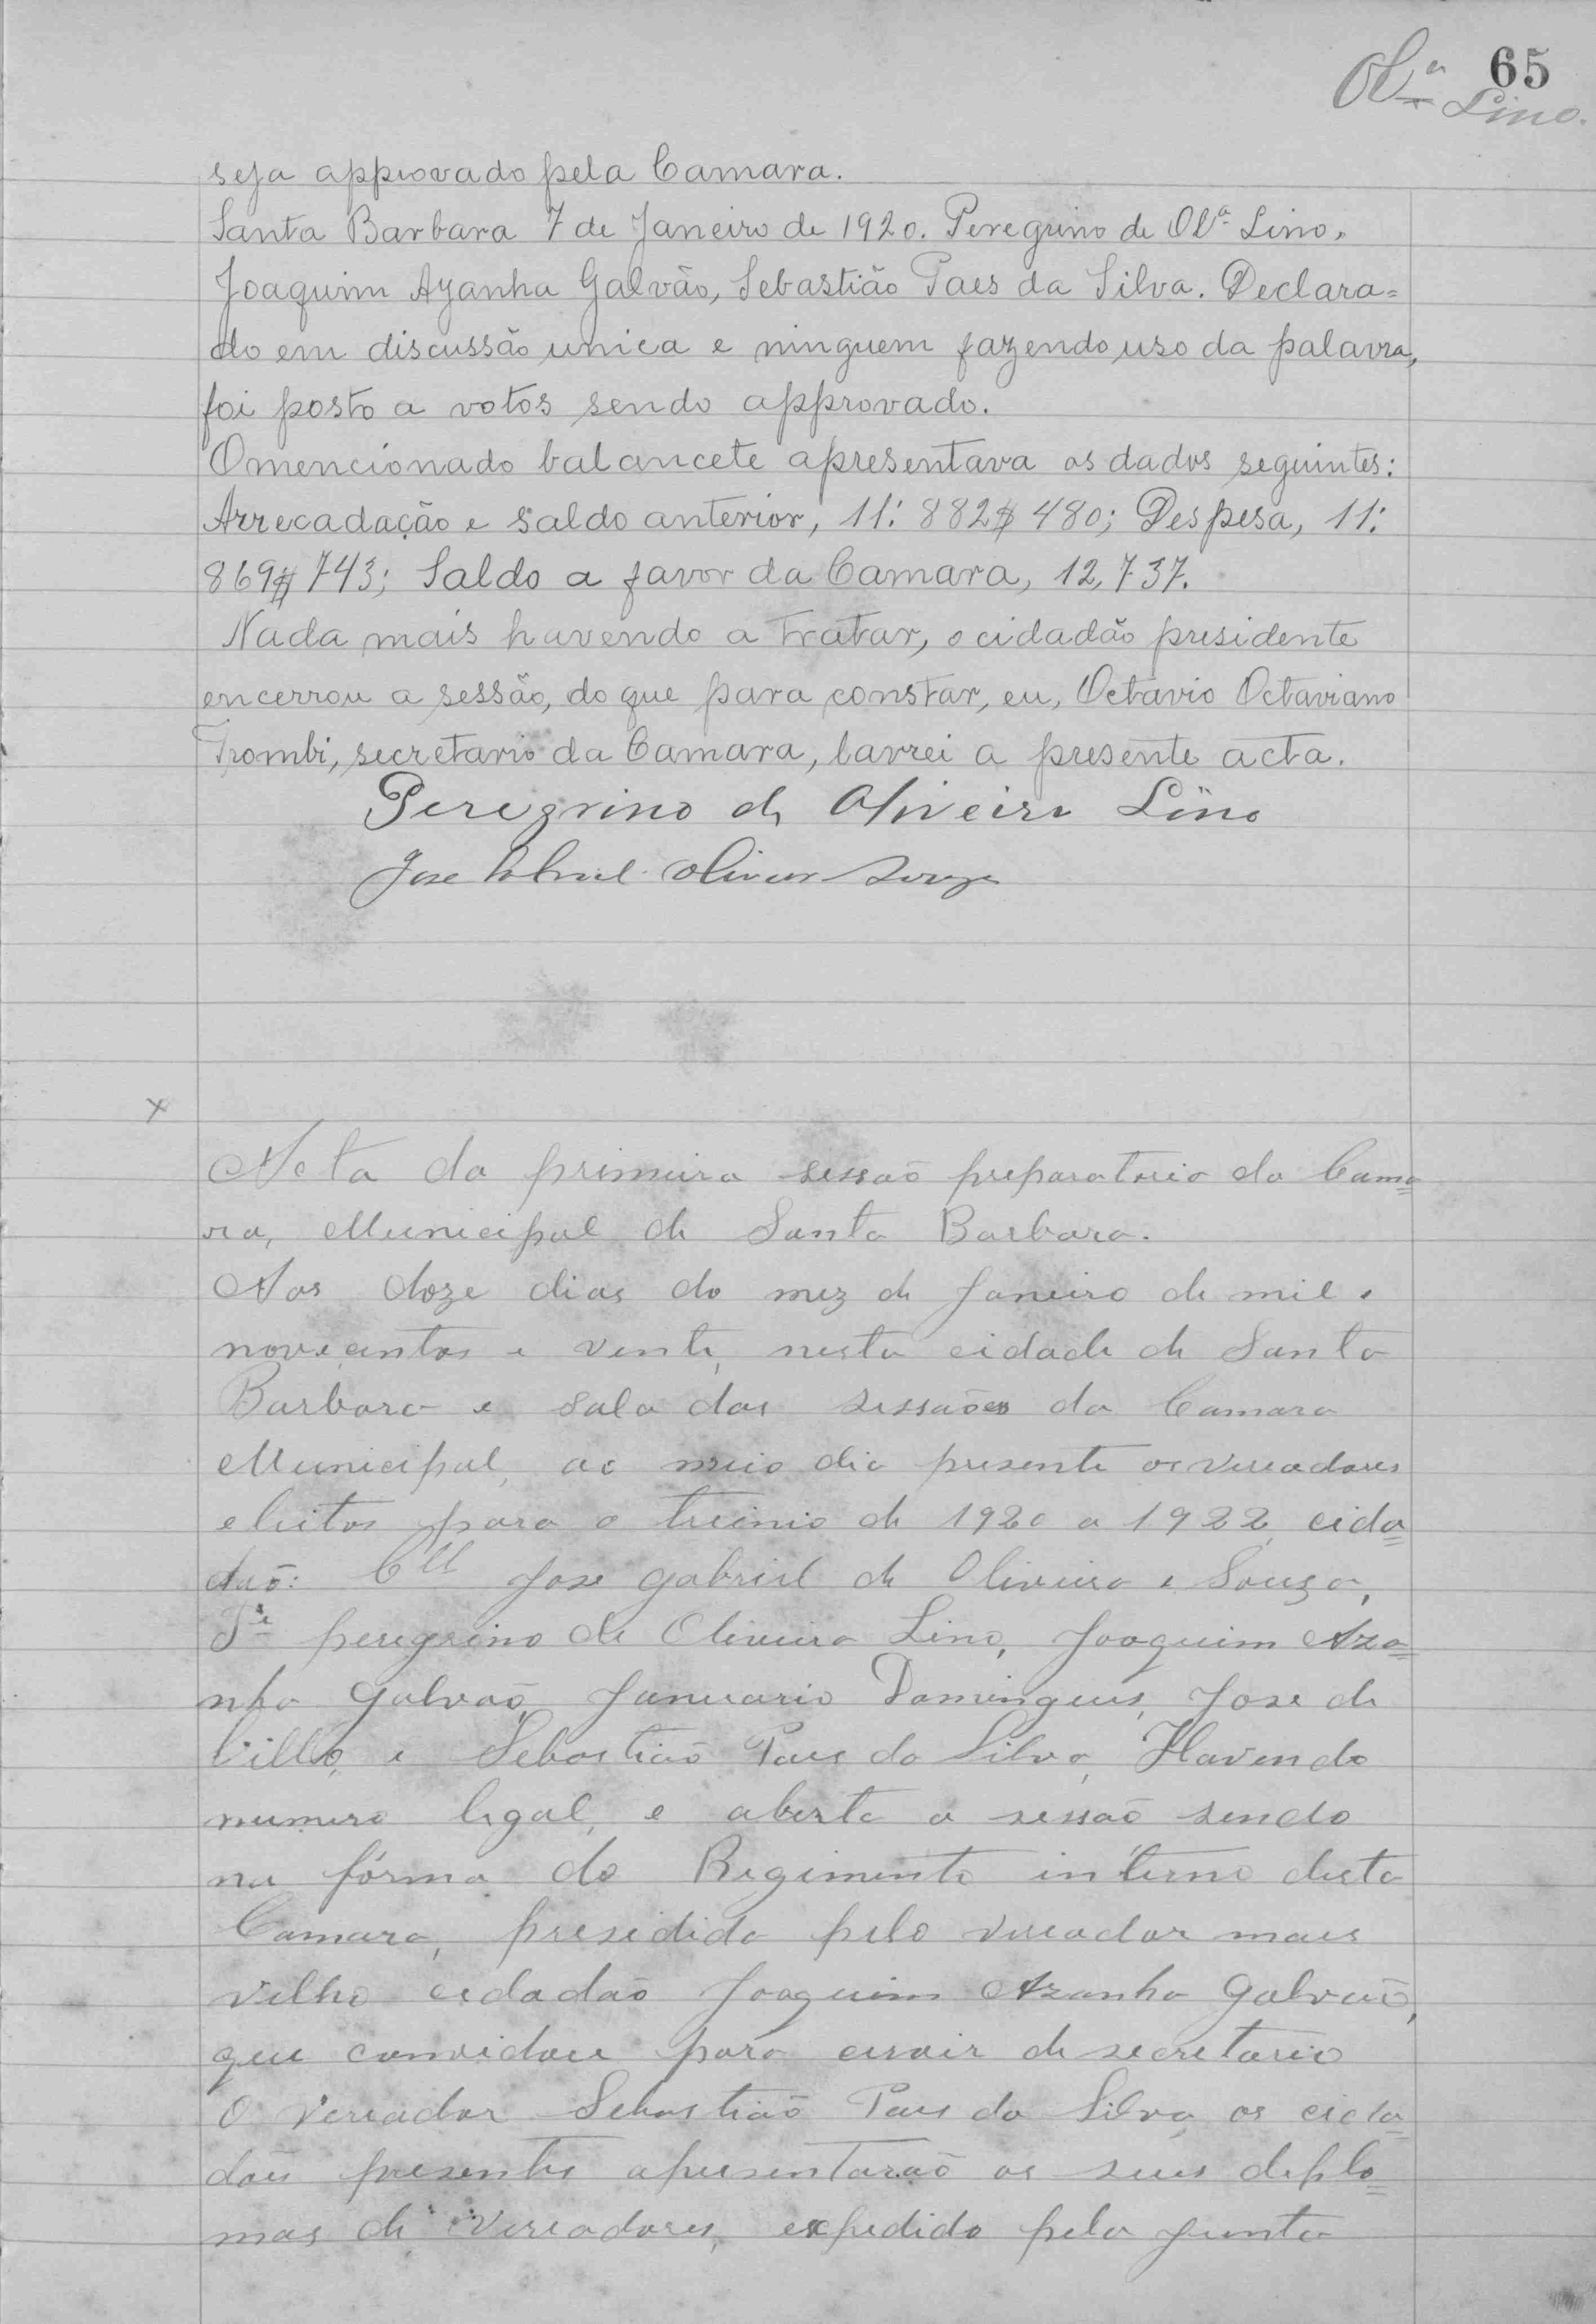 65
Olª Lino.
seja approvado pela Camara.
Santa Barbara 7 de Janeiro de 1920. Peregrino de Olª Lino,
Joaquim Azanha Galvão, Sebastião Paes da Silva. Declara=
do em discussão unica e ninguem fazendo uso da palavra,
foi posto a votos sendo approvado.
O mencionado balancete apresentava os dados seguintes:
Arrecadação e saldo anterior, 11:882$480; Despesa, 11:
869$743; Saldo a favor da Camara, 12,737.
Nada mais havendo a tratar, o cidadão presidente
encerrou a sessão, do que para constar, eu, Octavio Octaviano
Trombi, secretario da Camara, lavrei a presente acta.
Peregrino de Oliveira Lino
Jose Gabriel Oliveira Souza
x
Acta da primeira sessaõ preparatoria da Cama=
ra, Municipal de Santa Barbara.
Aos doze dias do mez de Janeiro de mil e
novecentos e vente, nesta cidade de Santa
Barbara e sala das sessaões da Camara
Municipal, ao meio dia presente os vereadores
eleitos para o trienio de 1920 a 1922, cida=
daõ: Cel Jose Gabriel de Oliveira e Souza,
Peregrino de Oliveira Lino, Joaquim Aza=
nha Galvaõ, Januario Domingues, Jose de
Cillo, e Sebastiaõ Paes da Silva, Havendo
numero legal, e aberta a sessaõ sendo
na fórma do Regimento interno desta
Camara, presidida pelo vereador maes
velho cidadaõ Joaquim Azanha Galvaõ,
que convidou para servir de secretario
O vereador Sebastiaõ Paes da Silva, os cida=
dões presentes apresentaraõ os seus deplo=
mas de Vereadores, expedido pela Junta